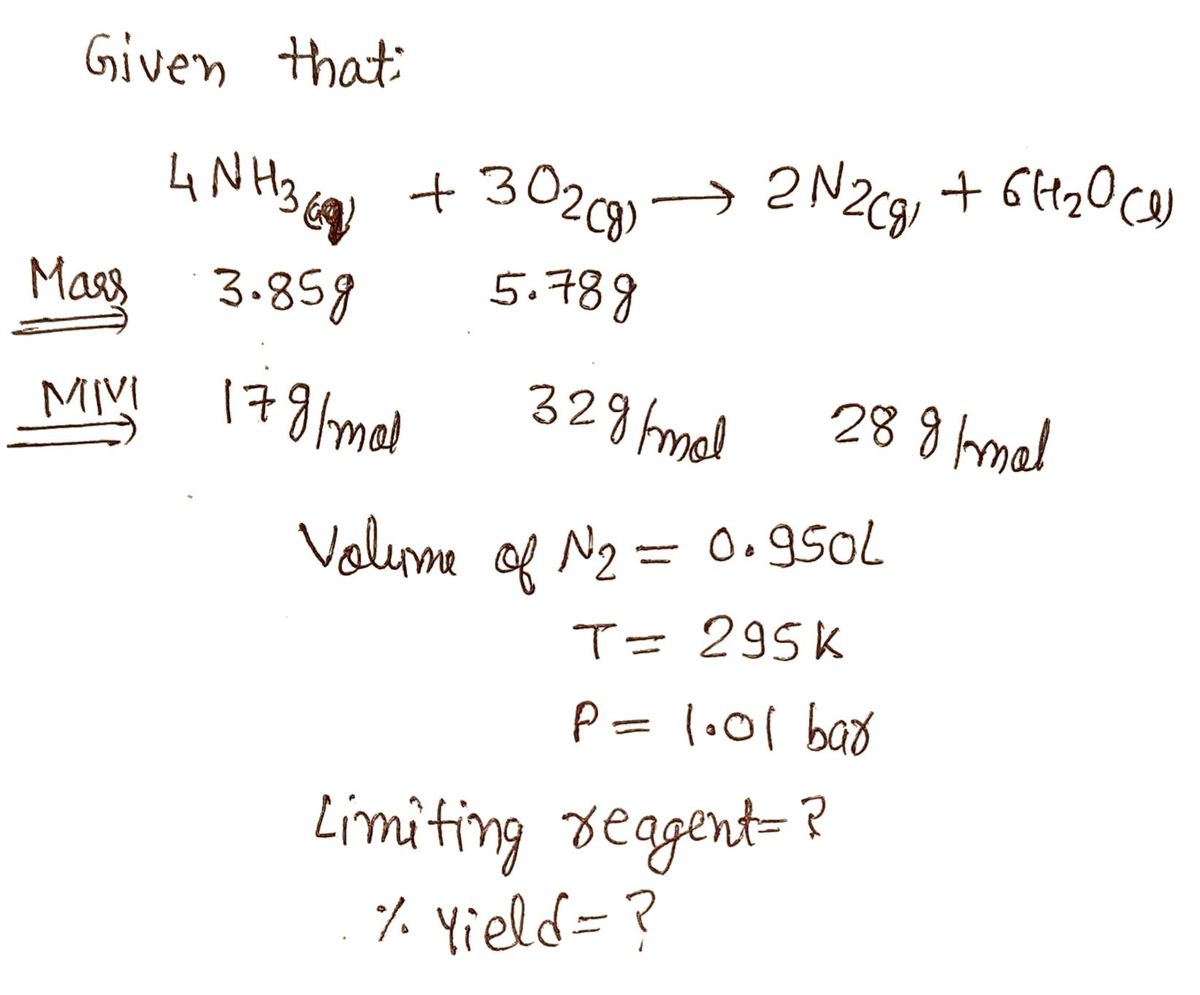 Given that:
4NH3(g) + 3O2(g) → 2N2(g) + 6H2O(l)
Mass 3.85g 5.78g
MM 17g/mol 32g/mol 28g/mol
Volume of N2 = 0.950L
T= 295K
P= 1.01 bar
Limiting reagent=?
% Yield=?